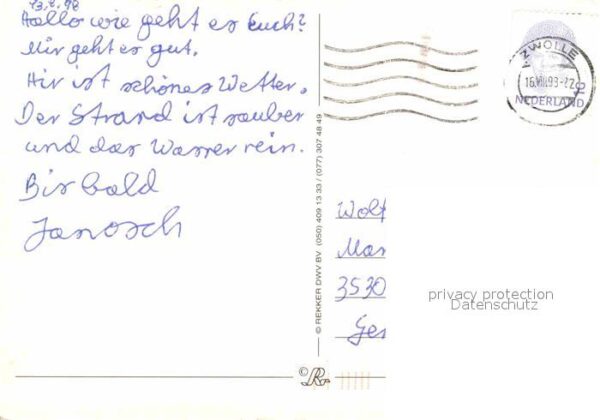 13.8.98
Hallo wie geht es Euch?
Mir geht es gut.
Hir ist schönes Wetter.
Der Strand ist sauber
und das Wasser rein.
Bis bald
Janosch
ZWOLLE
NEDERLAND
© REKKER DWV BV (050) 409 13 33 / (077) 307 48 49
Wolf
Man
3530
Ger
privacy protection
Datenschutz
© R